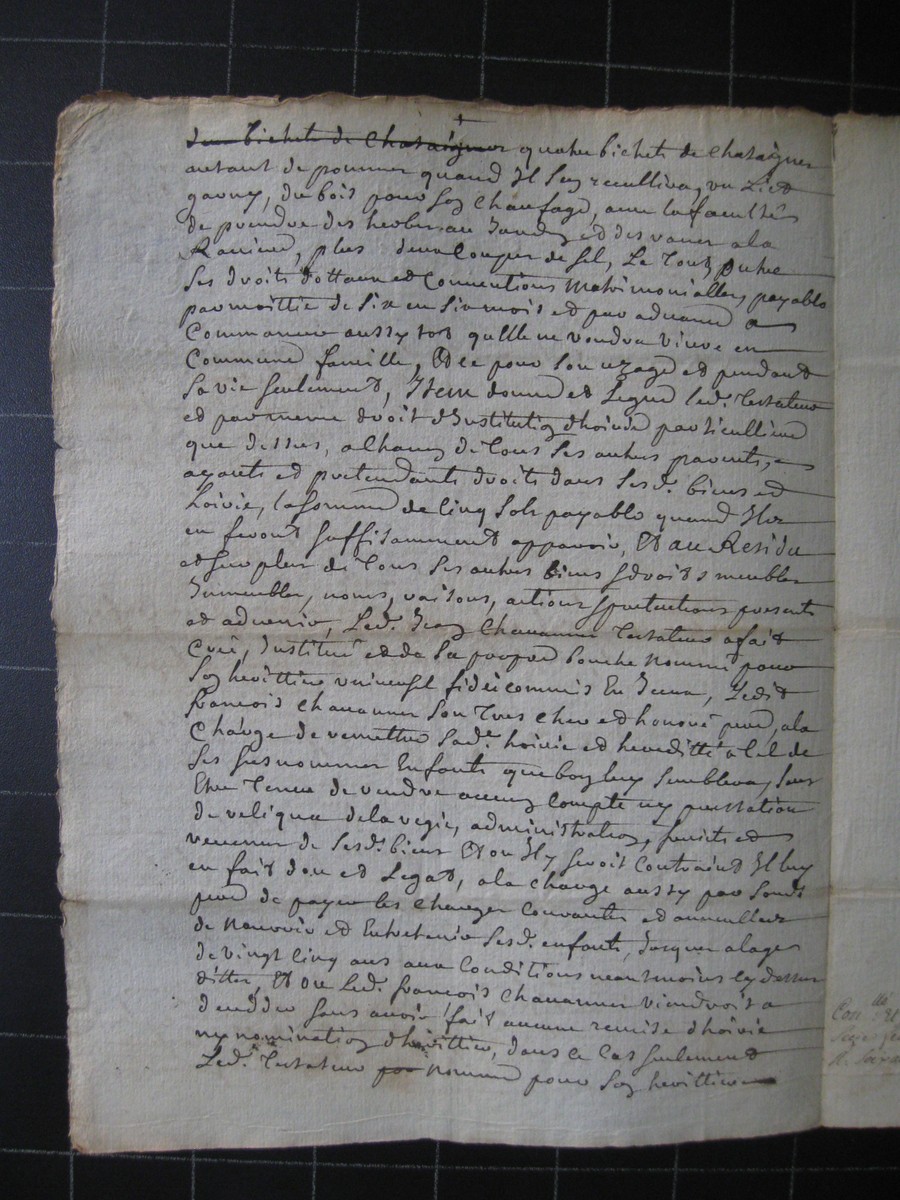 deux bichets de Chataignes quatre bichets de chataignes
autant de pommes quand Il sen recullira, un Lict
garny, du bois pour son Chaufage, avec la facultés
de prendre des herbes au Jardin et des raves a la
Ravierre, plus deux Couppes de sel, Le Tout outre
ses droits dottaux et Conventions Matrimonialles, payable
par moittie de six en six mois et par advance a
Commancer aussy tot qu'elle ne voudra vivre en
Commune famille, Et ce pour son uzage et pendant
sa vie seulement, Item donne et Legue led. Testateur
et par meme droit d'Institution d'hoirie particulliere
que dessus, a Chacun de Tous ses autres parents,
ayants et pretendants droits dans sesd. biens et
hoirie, la somme de Cinq sols payable quand Ils
en feront suffisamment apparoir, Et au Residu
et surplus de Tous ses autres biens droits meubles
Immeubles, noms, raisons, actions pretentions presents
et advenir, Led. Jean Chavanne Testateur a fait
Creé, Institué et de sa propre bouche Nommé pour
son herittier universel fideicommis Led
françois Chavannes son Tres cher et honoré pere, a la
Charge de remettre sad.e hoirie et heredité a Cel de
ses susnommes Enfants que bon luy semblera, sans
Etre Tenu de rendre aucun Compte ny prestation
de reliqua de la regie, administration, fruits et
revenus de sesd. biens Et ou Il y seroit Contraint Il luy
en fait don et Legat, a la charge aussy par sond
pere de payer les Charges Courantes et annuelles
de Nourrir et Entretenir sesd. enfants, Jusques a lage
de vingt Cinq ans aux Conditions neantmoins cy dessus
dittes, Et ou Led. françois Chavannes viendroit a
decedder sans avoir fait aucune remise d'hoirie
ny nomination d'herittier, dans ce Cas seulement
Led. Testateur nomme pour son herittier